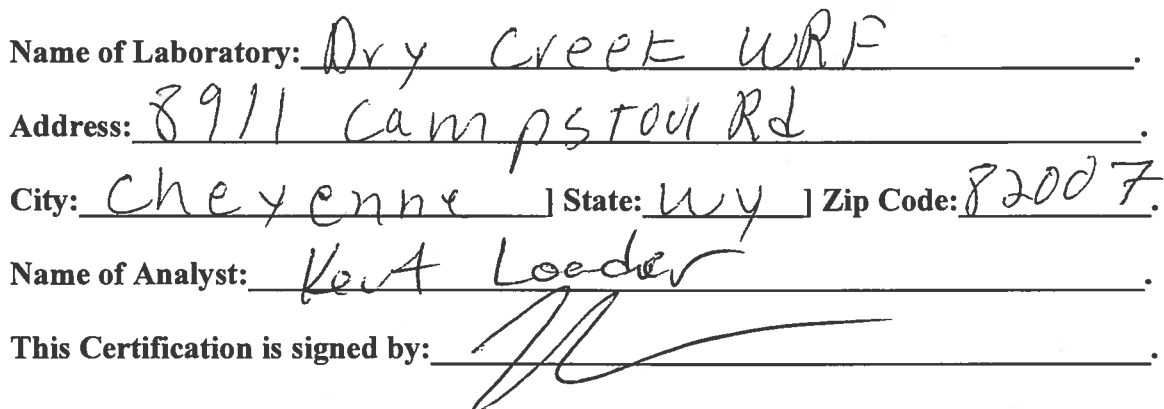 Name of Laboratory: Dry Creek WRF.
Address: 8911 Campstool Rd.
City: Cheyenne ] State: WY ] Zip Code: 82007.
Name of Analyst: Loader.
This Certification is signed by: .